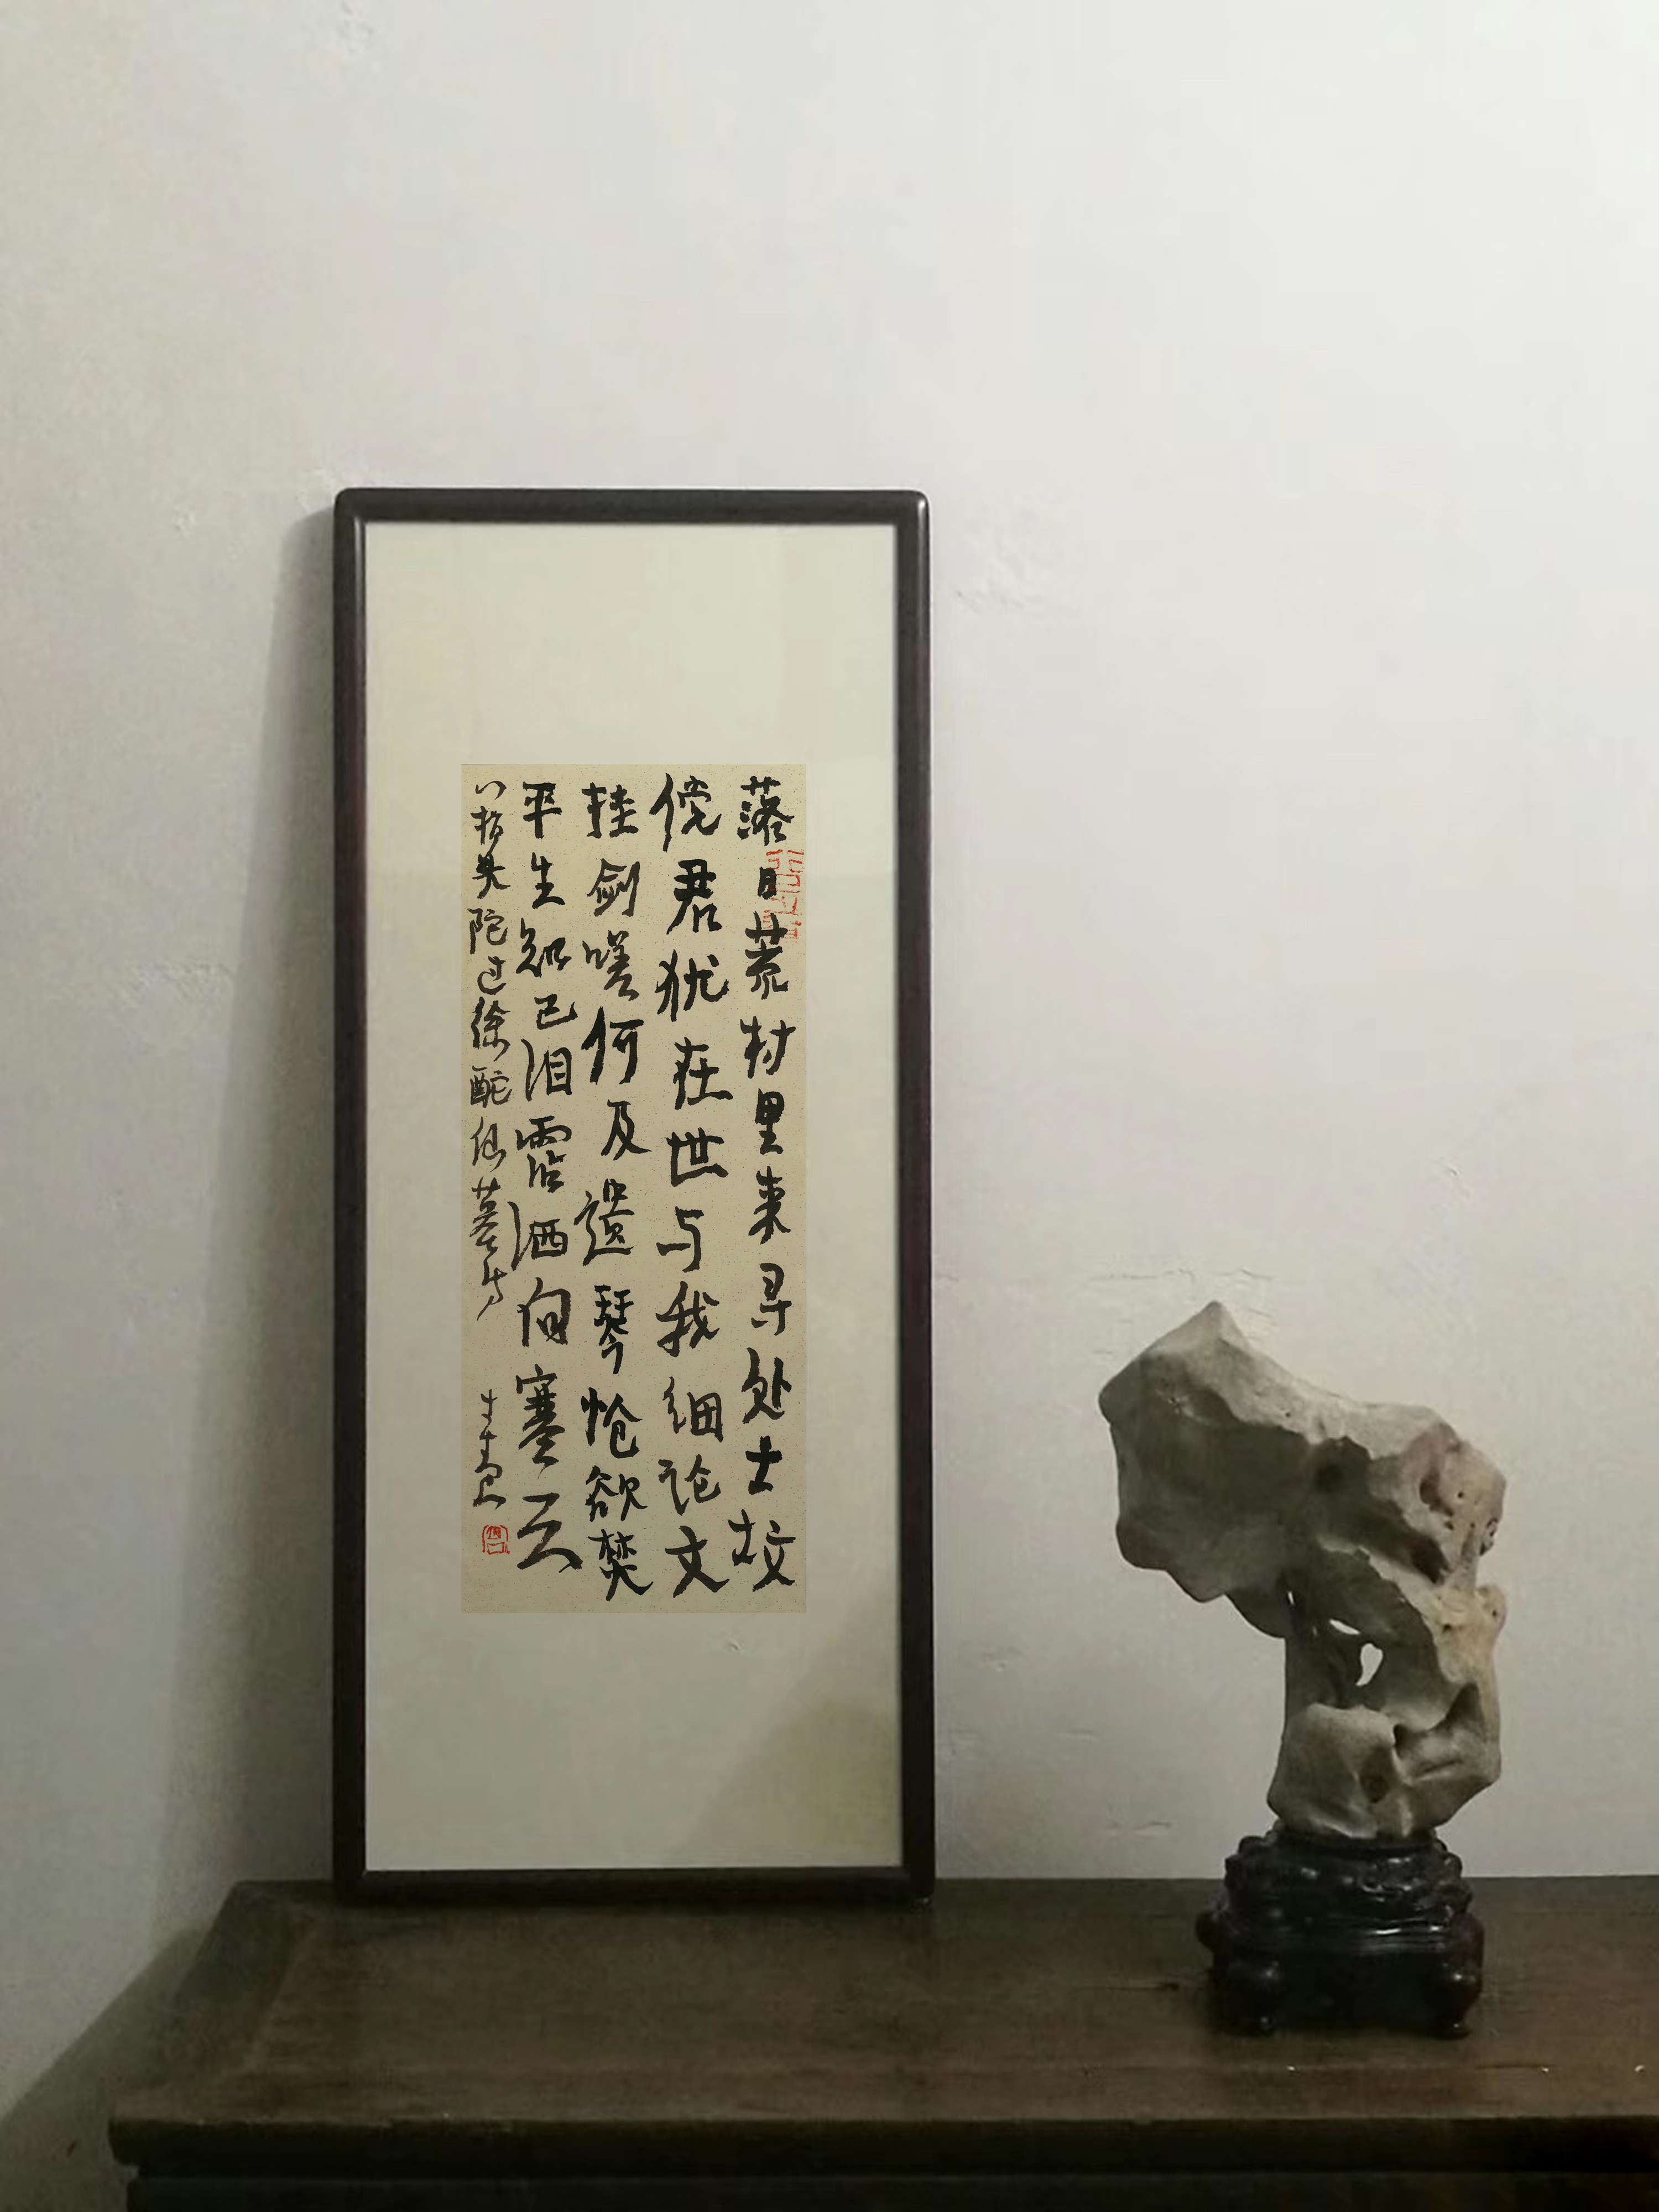 落日荒村里来寻处士坟
傥君犹在世与我细论文
挂剑嗟何及遗琴怆欲焚
平生知己泪霑洒向寒云
八指头陀过徐酡仙墓诗